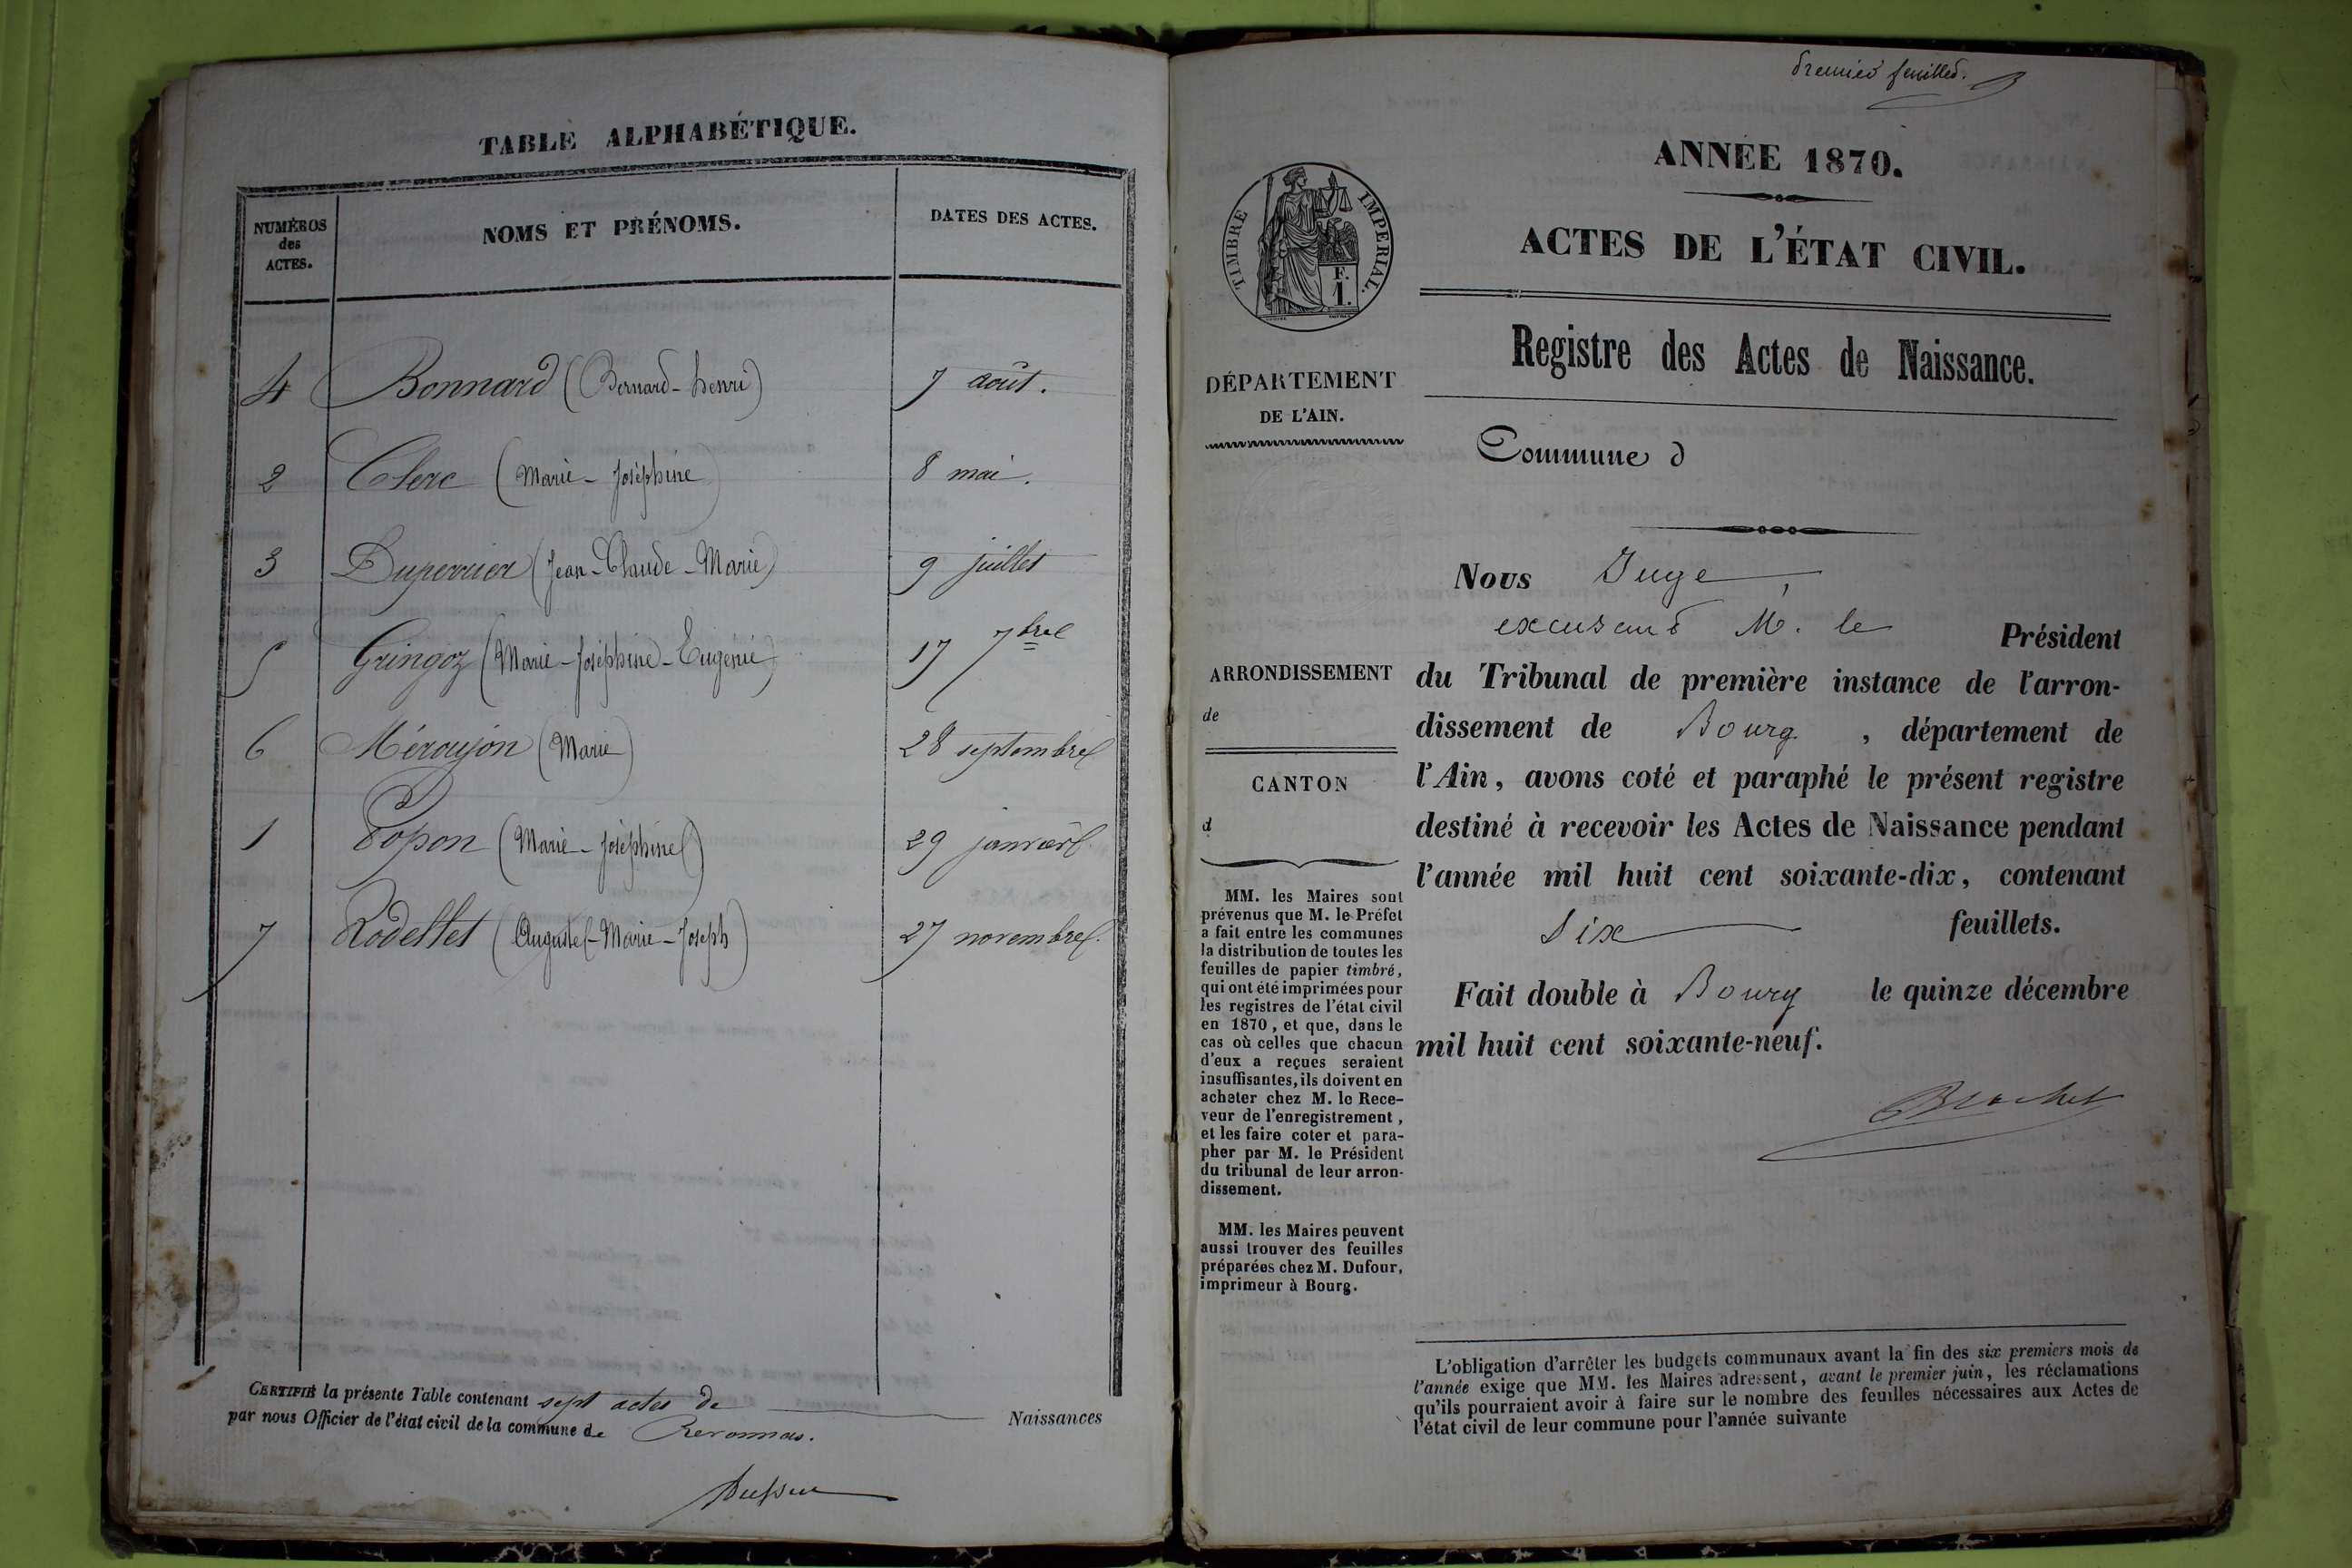 TABLE ALPHABÉTIQUE.
NUMÉROS des ACTES.
NOMS ET PRÉNOMS.
DATES DES ACTES.
4 Bonnard (Bernard-henri) 7 août.
2 Clerc (Marie-Joséphine) 8 mai.
3 Duperrier (Jean-Claude-Marie) 9 juillet
5 Gringoz (Marie-Joséphine-Eugénie) 17 7bre
6 Méroujon (Marie) 28 septembre
1 Popon (Marie-Joséphine) 29 janvier
7 Rodellet (Auguste-Marie-Joseph) 27 novembre.
CERTIFIÉ la présente Table contenant sept actes de Naissances
par nous Officier de l'état civil de la commune de
premier feuillet.
ANNÉE 1870.
ACTES DE L'ÉTAT CIVIL.
TIMBRE IMPERIAL.
F.
1.
Registre des Actes de Naissance.
DÉPARTEMENT
DE L'AIN.
Commune d
Nous Juge,
excusant M. le Président
du Tribunal de première instance de l'arron-
dissement de Bourg, département de
l'Ain, avons coté et paraphé le présent registre
destiné à recevoir les Actes de Naissance pendant
l'année mil huit cent soixante-dix, contenant
Six feuillets.
Fait double à Bourg le quinze décembre
mil huit cent soixante-neuf.
Brochet
ARRONDISSEMENT
de
CANTON
d
MM. les Maires sont
prévenus que M. le Préfet
a fait entre les communes
la distribution de toutes les
feuilles de papier timbré,
qui ont été imprimées pour
les registres de l'état civil
en 1870, et que, dans le
cas où celles que chacun
d'eux a reçues seraient
insuffisantes, ils doivent en
acheter chez M. le Rece-
veur de l'enregistrement,
et les faire coter et para-
pher par M. le Président
du tribunal de leur arron-
dissement.
MM. les Maires peuvent
aussi trouver des feuilles
préparées chez M. Dufour,
imprimeur à Bourg.
L'obligation d'arrêter les budgets communaux avant la fin des six premiers mois de
l'année exige que MM. les Maires adressent, avant le premier juin, les réclamations
qu'ils pourraient avoir à faire sur le nombre des feuilles nécessaires aux Actes de
l'état civil de leur commune pour l'année suivante